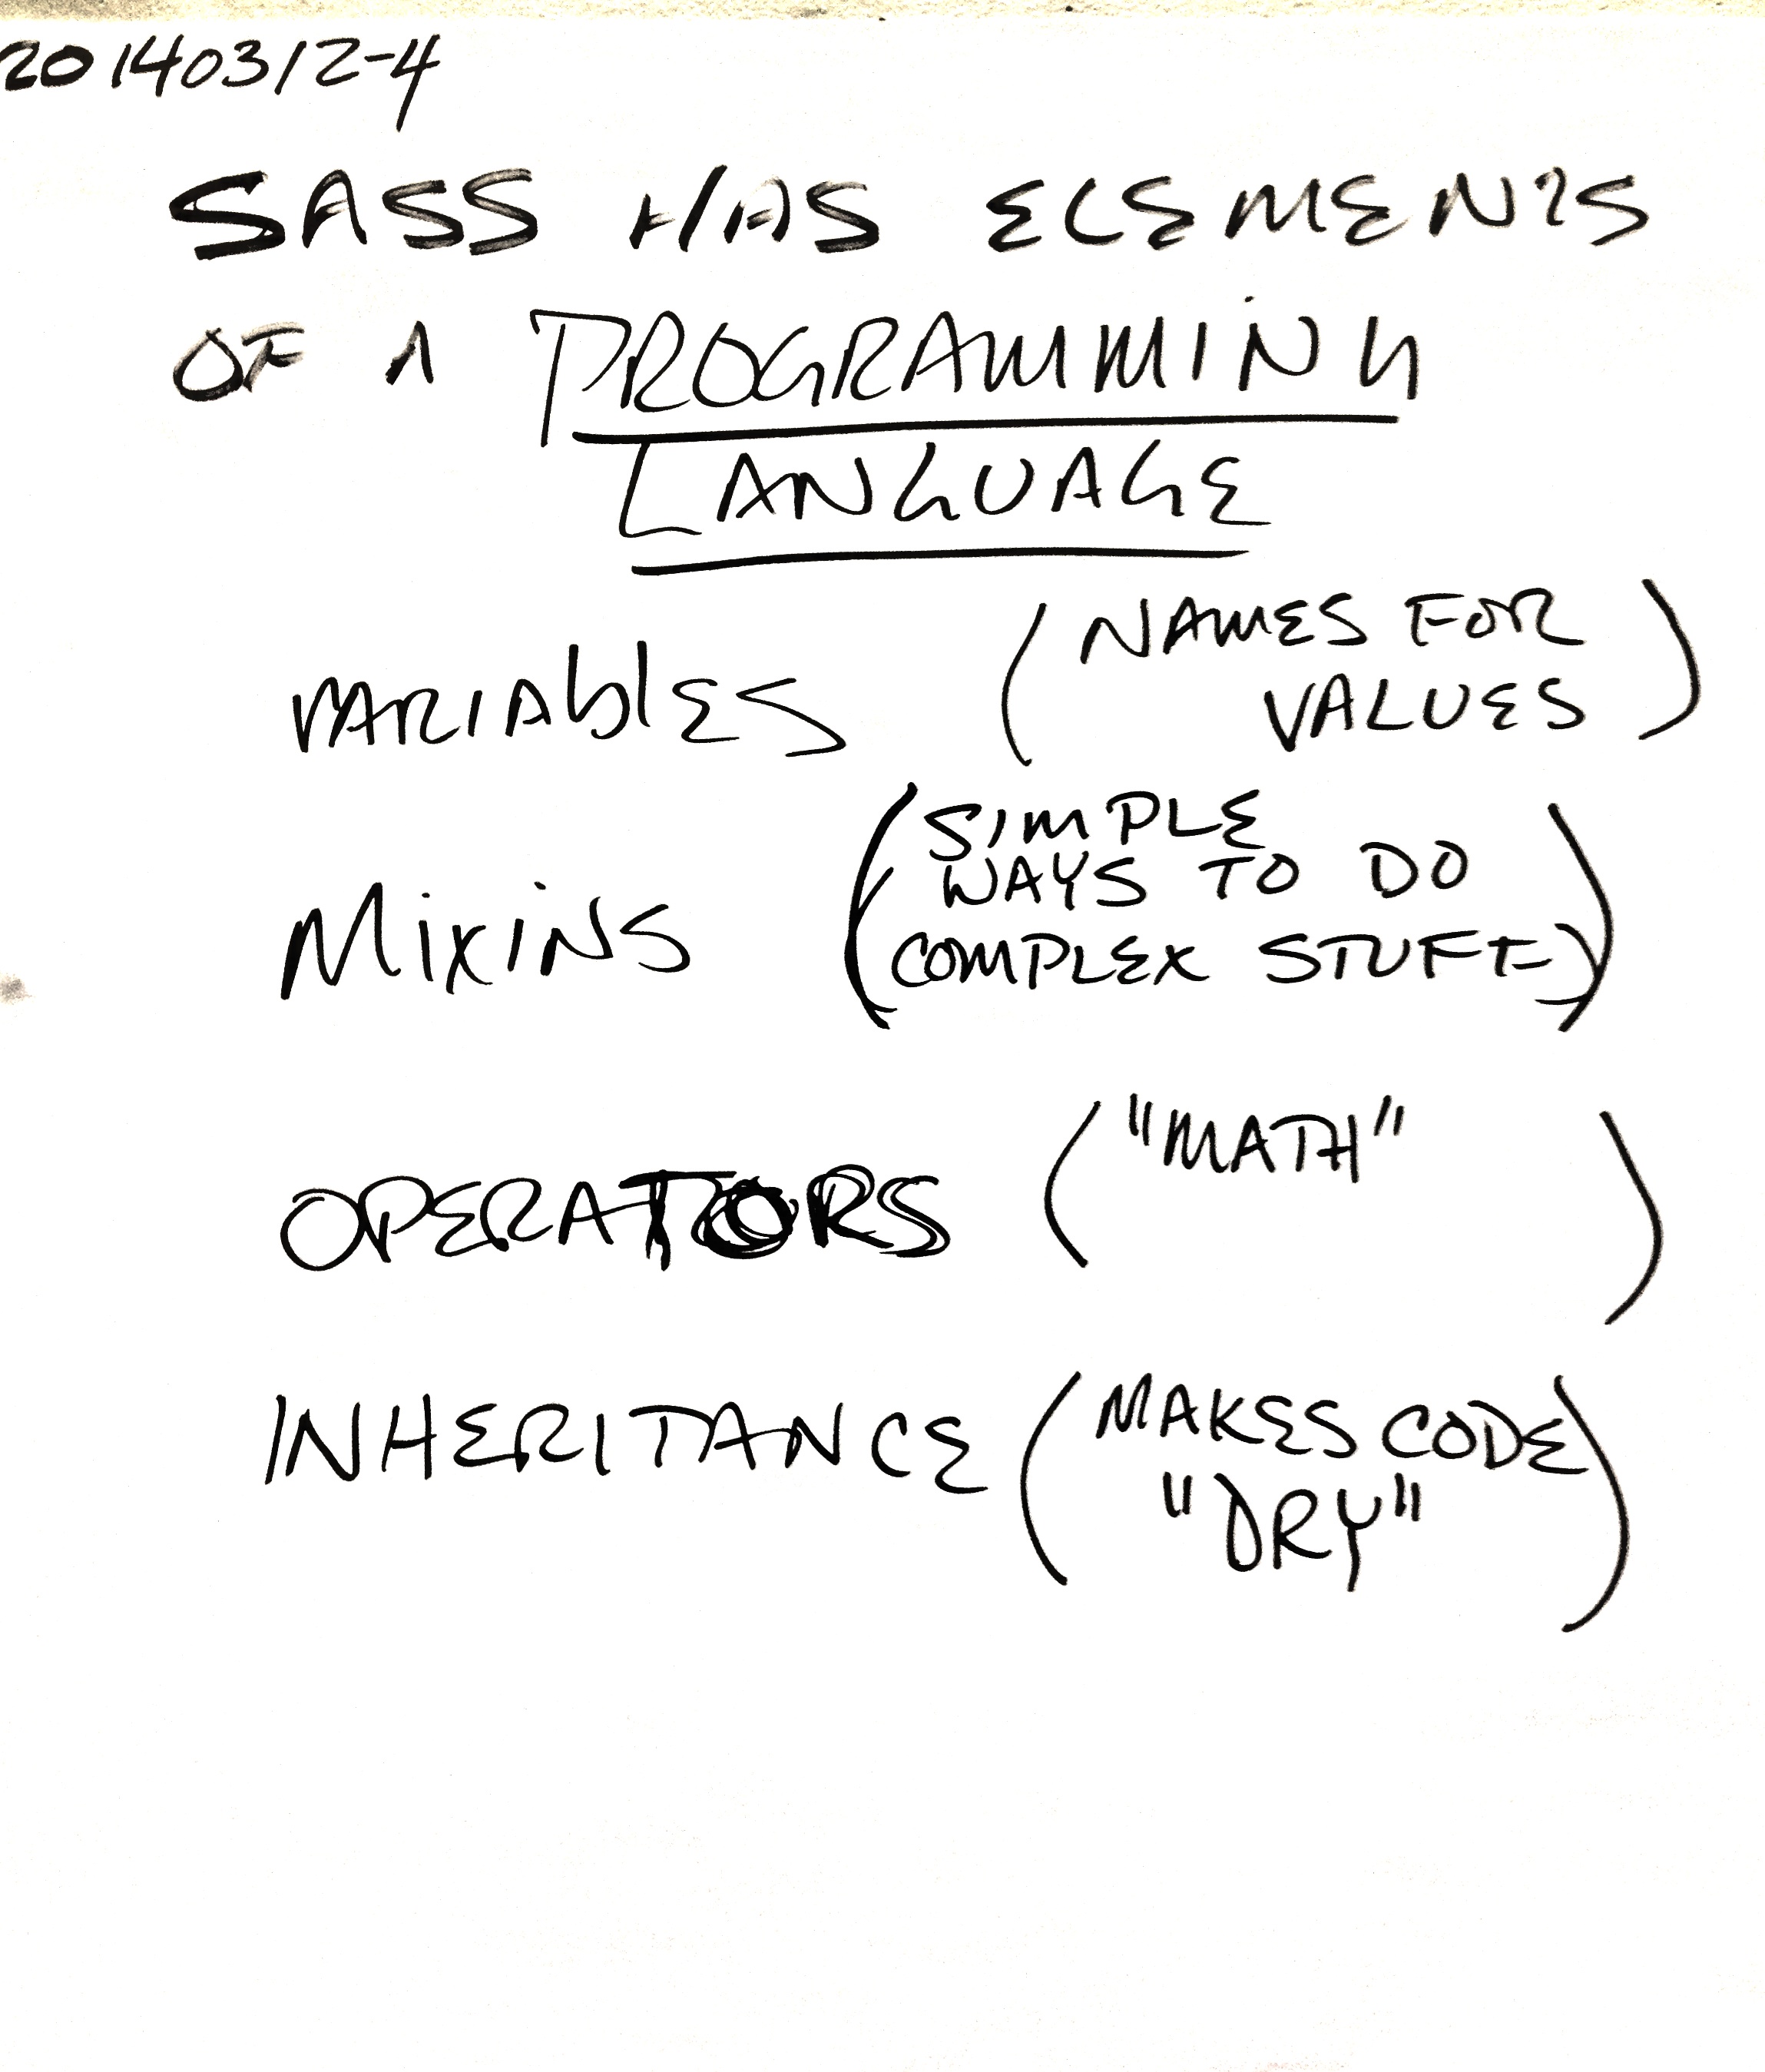 20140312-4
SASS HAS ELEMENTS
OF A PROGRAMMING
LANGUAGE
VARIAblES (NAMES FOR
VALUES)
MixiNS (SIMPLE
WAYS TO DO
COMPLEX STUFF)
OPERATORS ("MATH")
INHERITANCE (MAKES CODE
"DRY")